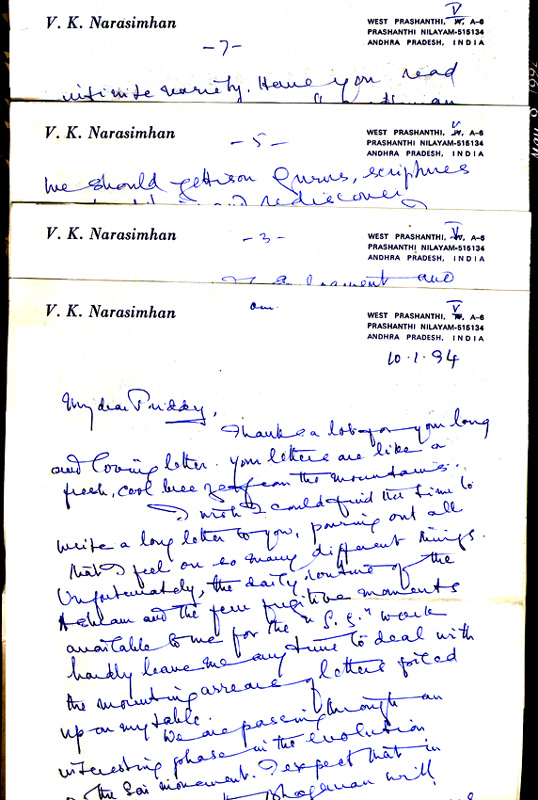 V. K. Narasimhan
WEST PRASHANTHI, V IV, A-6
PRASHANTHI NILAYAM-515134
ANDHRA PRADESH, INDIA
-7-
infinite variety. Have you read
V. K. Narasimhan
WEST PRASHANTHI, V IV, A-6
PRASHANTHI NILAYAM-515134
ANDHRA PRADESH, INDIA
-5-
We should jettison Gurus, scriptures
and rediscover
V. K. Narasimhan
WEST PRASHANTHI, V IV, A-6
PRASHANTHI NILAYAM-515134
ANDHRA PRADESH, INDIA
-3-
and
V. K. Narasimhan
om
WEST PRASHANTHI, V IV, A-6
PRASHANTHI NILAYAM-515134
ANDHRA PRADESH, INDIA
10.1.94
My dear Priddy,
Thanks a lot for your long
and loving letter. Your letters are like a
fresh, cool breeze from the mountains.
I wish I could find the time to
write a long letter to you, pouring out all
that I feel on so many different things.
Unfortunately, the daily routine of the
Ashram and the few fugitive moments
available to me for the "S.S." work
hardly leave me any time to deal with
the mounting arrears of letters piled
up on my table.
We are passing through an
interesting phase in the evolution
of the Sai movement. I expect that in
Bhagavan will